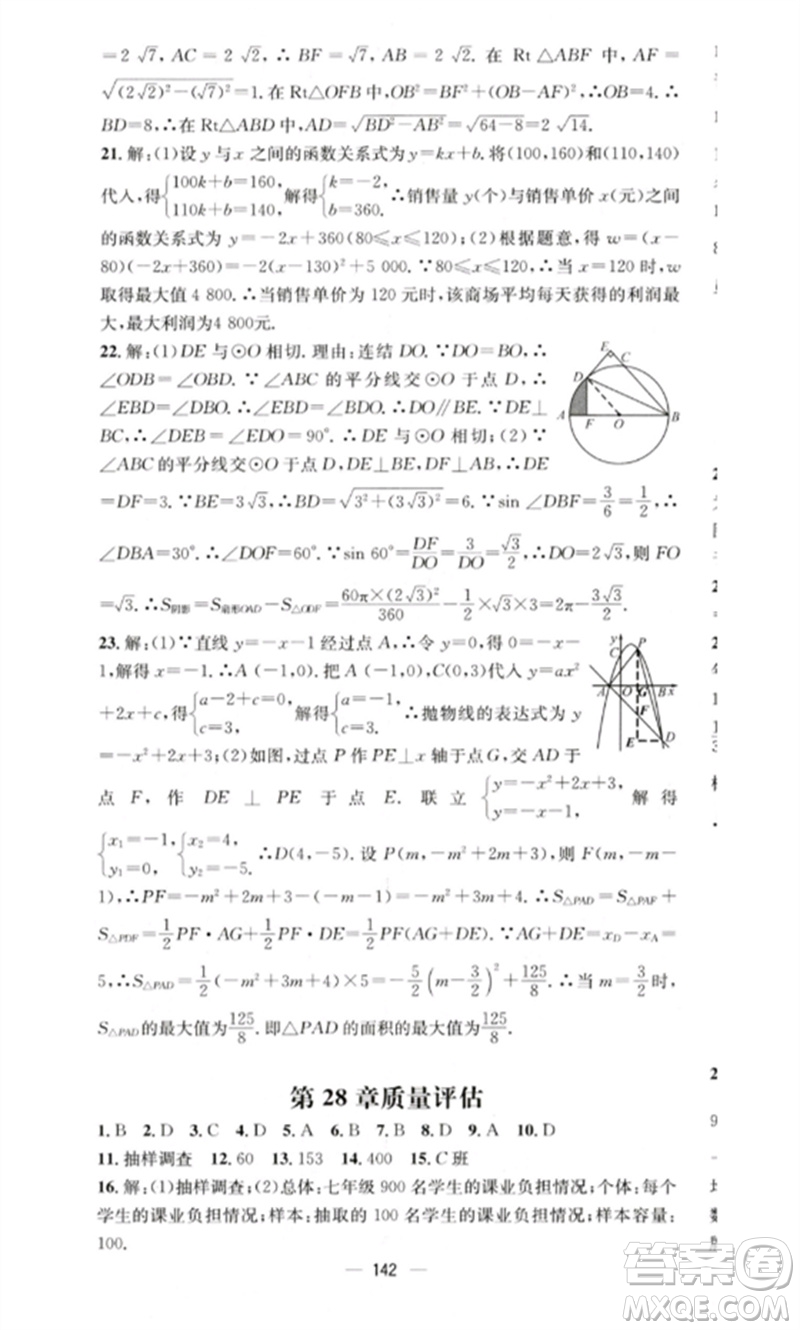 =2√7, AC=2√2. ∴BF=√7, AB=2√2. 在 Rt△ABF 中, AF=
√((2√2)²−(√7)²)=1. 在 Rt△OFB 中, OB²=BF²+(OB−AF)², ∴OB=4. ∴
BD=8, ∴在 Rt△ABD 中, AD=√(BD²−AB²)=√(64−8)=2√14.
21. 解:(1)设 y 与 x 之间的函数关系式为 y=kx+b. 将(100,160)和(110,140)
代入,得{100k+b=160, 110k+b=140, 解得{k=−2, b=360. ∴销售量 y(个)与销售单价 x(元)之间
的函数关系式为 y=−2x+360(80≤x≤120);(2)根据题意,得 w=(x−
80)(−2x+360)=−2(x−130)²+5 000. ∵80≤x≤120, ∴当 x=120 时, w
取得最大值 4 800. ∴当销售单价为 120 元时,该商场平均每天获得的利润最
大,最大利润为4 800元.
22. 解:(1)DE 与⊙O 相切. 理由:连结 DO. ∵DO=BO, ∴
∠ODB=∠OBD. ∵∠ABC 的平分线交⊙O 于点 D, ∴
∠EBD=∠DBO. ∴∠EBD=∠BDO. ∴DO∥BE. ∵DE⊥
BC, ∴∠DEB=∠EDO=90°. ∴DE 与⊙O 相切;(2)∵
∠ABC 的平分线交⊙O 于点 D, DE⊥BE, DF⊥AB, ∴DE
=DF=3. ∵BE=3√3, ∴BD=√(3²+(3√3)²)=6. ∵sin∠DBF=3/6=1/2, ∴
∠DBA=30°. ∴∠DOF=60°. ∵sin 60°=DF/DO=3/DO=√3/2, ∴DO=2√3, 则 FO
=√3. ∴S阴影=S扇形OAD−S△ODF=60π×(2√3)²/360−1/2×√3×3=2π−3√3/2.
E
C
D
A
F
O
B
23. 解:(1)∵直线 y=−x−1 经过点 A, ∴令 y=0, 得 0=−x−
1, 解得 x=−1. ∴A(−1,0). 把 A(−1,0), C(0,3)代入 y=ax²
+2x+c, 得{a−2+c=0, c=3, 解得{a=−1, c=3. ∴抛物线的表达式为 y
=−x²+2x+3;(2)如图,过点 P 作 PE⊥x 轴于点 G, 交 AD 于
点 F, 作 DE⊥PE 于点 E. 联立{y=−x²+2x+3, y=−x−1, 解得
{x₁=−1, y₁=0, {x₂=4, y₂=−5. ∴D(4,−5). 设 P(m,−m²+2m+3), 则 F(m,−m−
1), ∴PF=−m²+2m+3−(−m−1)=−m²+3m+4. ∴S△PAD=S△PAF+
S△PDF=1/2PF·AG+1/2PF·DE=1/2PF(AG+DE). ∵AG+DE=x_D−x_A=
5, ∴S△PAD=1/2(−m²+3m+4)×5=−5/2(m−3/2)²+125/8. ∴当 m=3/2时,
S△PAD的最大值为125/8. 即△PAD 的面积的最大值为125/8.
y
P
C
A
O
G
B
x
F
E
D
第 28 章质量评估
1. B 2. D 3. C 4. D 5. A 6. D 7. B 8. D 9. A 10. D
11. 抽样调查 12. 60 13. 153 14. 400 15. C 班
16. 解:(1)抽样调查;(2)总体:七年级 900 名学生的课业负担情况;个体:每个
学生的课业负担情况;样本:抽取的 100 名学生的课业负担情况;样本容量:
100.
142
答案圈
MXQE.COM